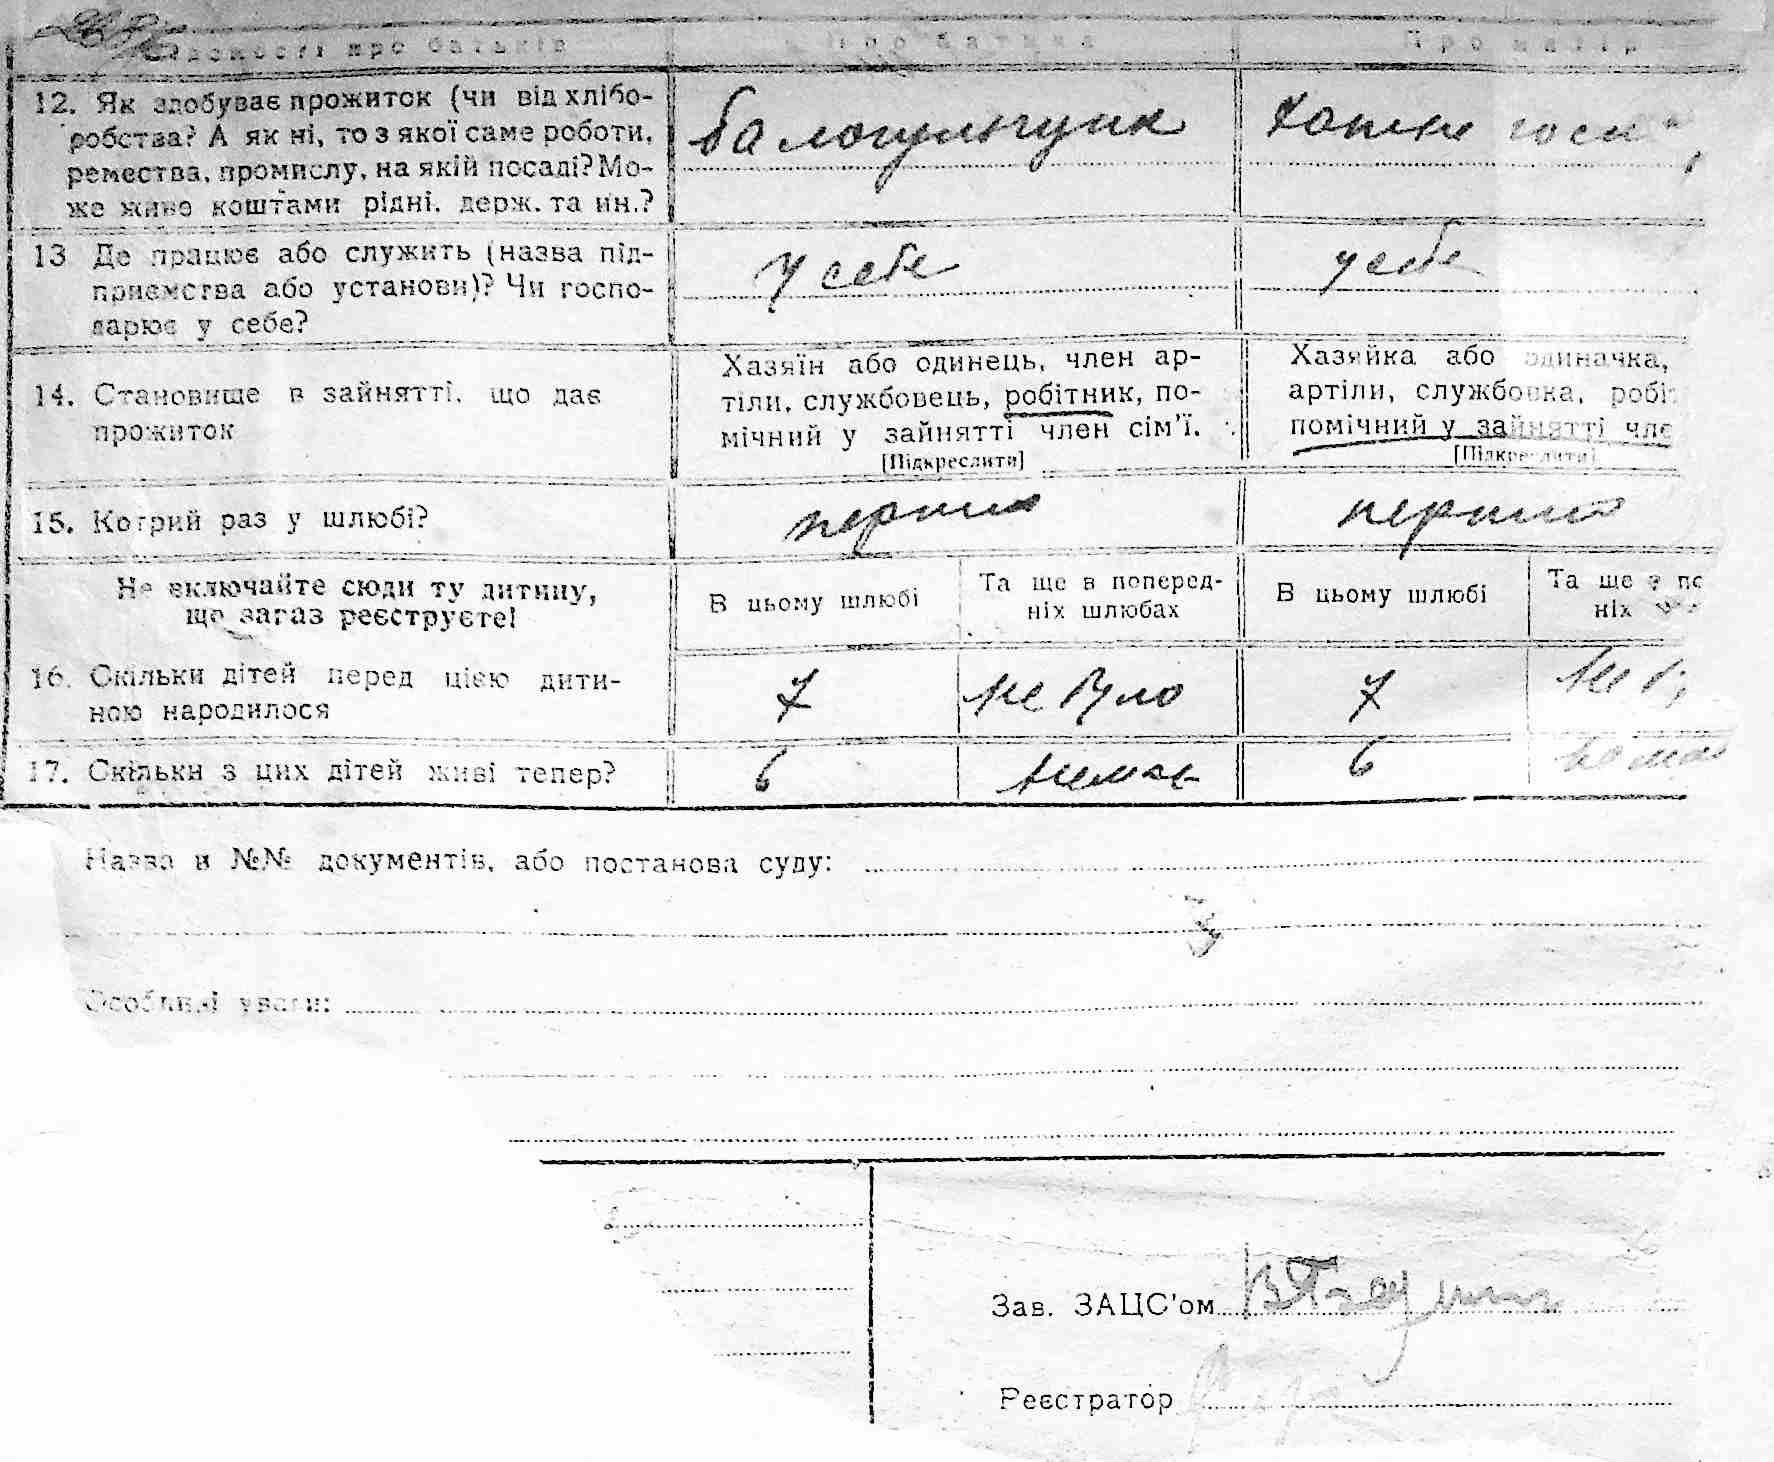 Відомості про батьків Про батька Про матір
12. Як здобуває прожиток (чи від хлібо-
робства? А як ні, то з якої саме роботи,
ремества, промислу, на якій посаді? Мо-
же живе коштами рідні, держ. та ин.?
балогульщик
хатне госп
13 Де працює або служить (назва під-
приємства або установи)? Чи госпо-
дарює у себе?
у себе
у себе
14. Становище в зайнятті, що дає
прожиток
Хазяїн або одинець, член ар-
тіли, службовець, робітник, по-
мічний у зайнятті член сім'ї.
[Підкреслити]
Хазяйка або одиначка,
артіли, службовка, робі
помічний у зайнятті чле
[Підкреслити]
15. Котрий раз у шлюбі?
перший
перший
Не включайте сюди ту дитину,
що зараз реєструєте!
В цьому шлюбі
Та ще в поперед-
ніх шлюбах
В цьому шлюбі
Та ще в по
ніх
16. Скільки дітей перед цією дити-
ною народилося
7 не було 7 не б
17. Скільки з цих дітей живі тепер?
6 немає 6 немає
Назва и №№ документів, або постанова суду:
Особливі уваги:
Зав. ЗАЦС'ом
Реєстратор